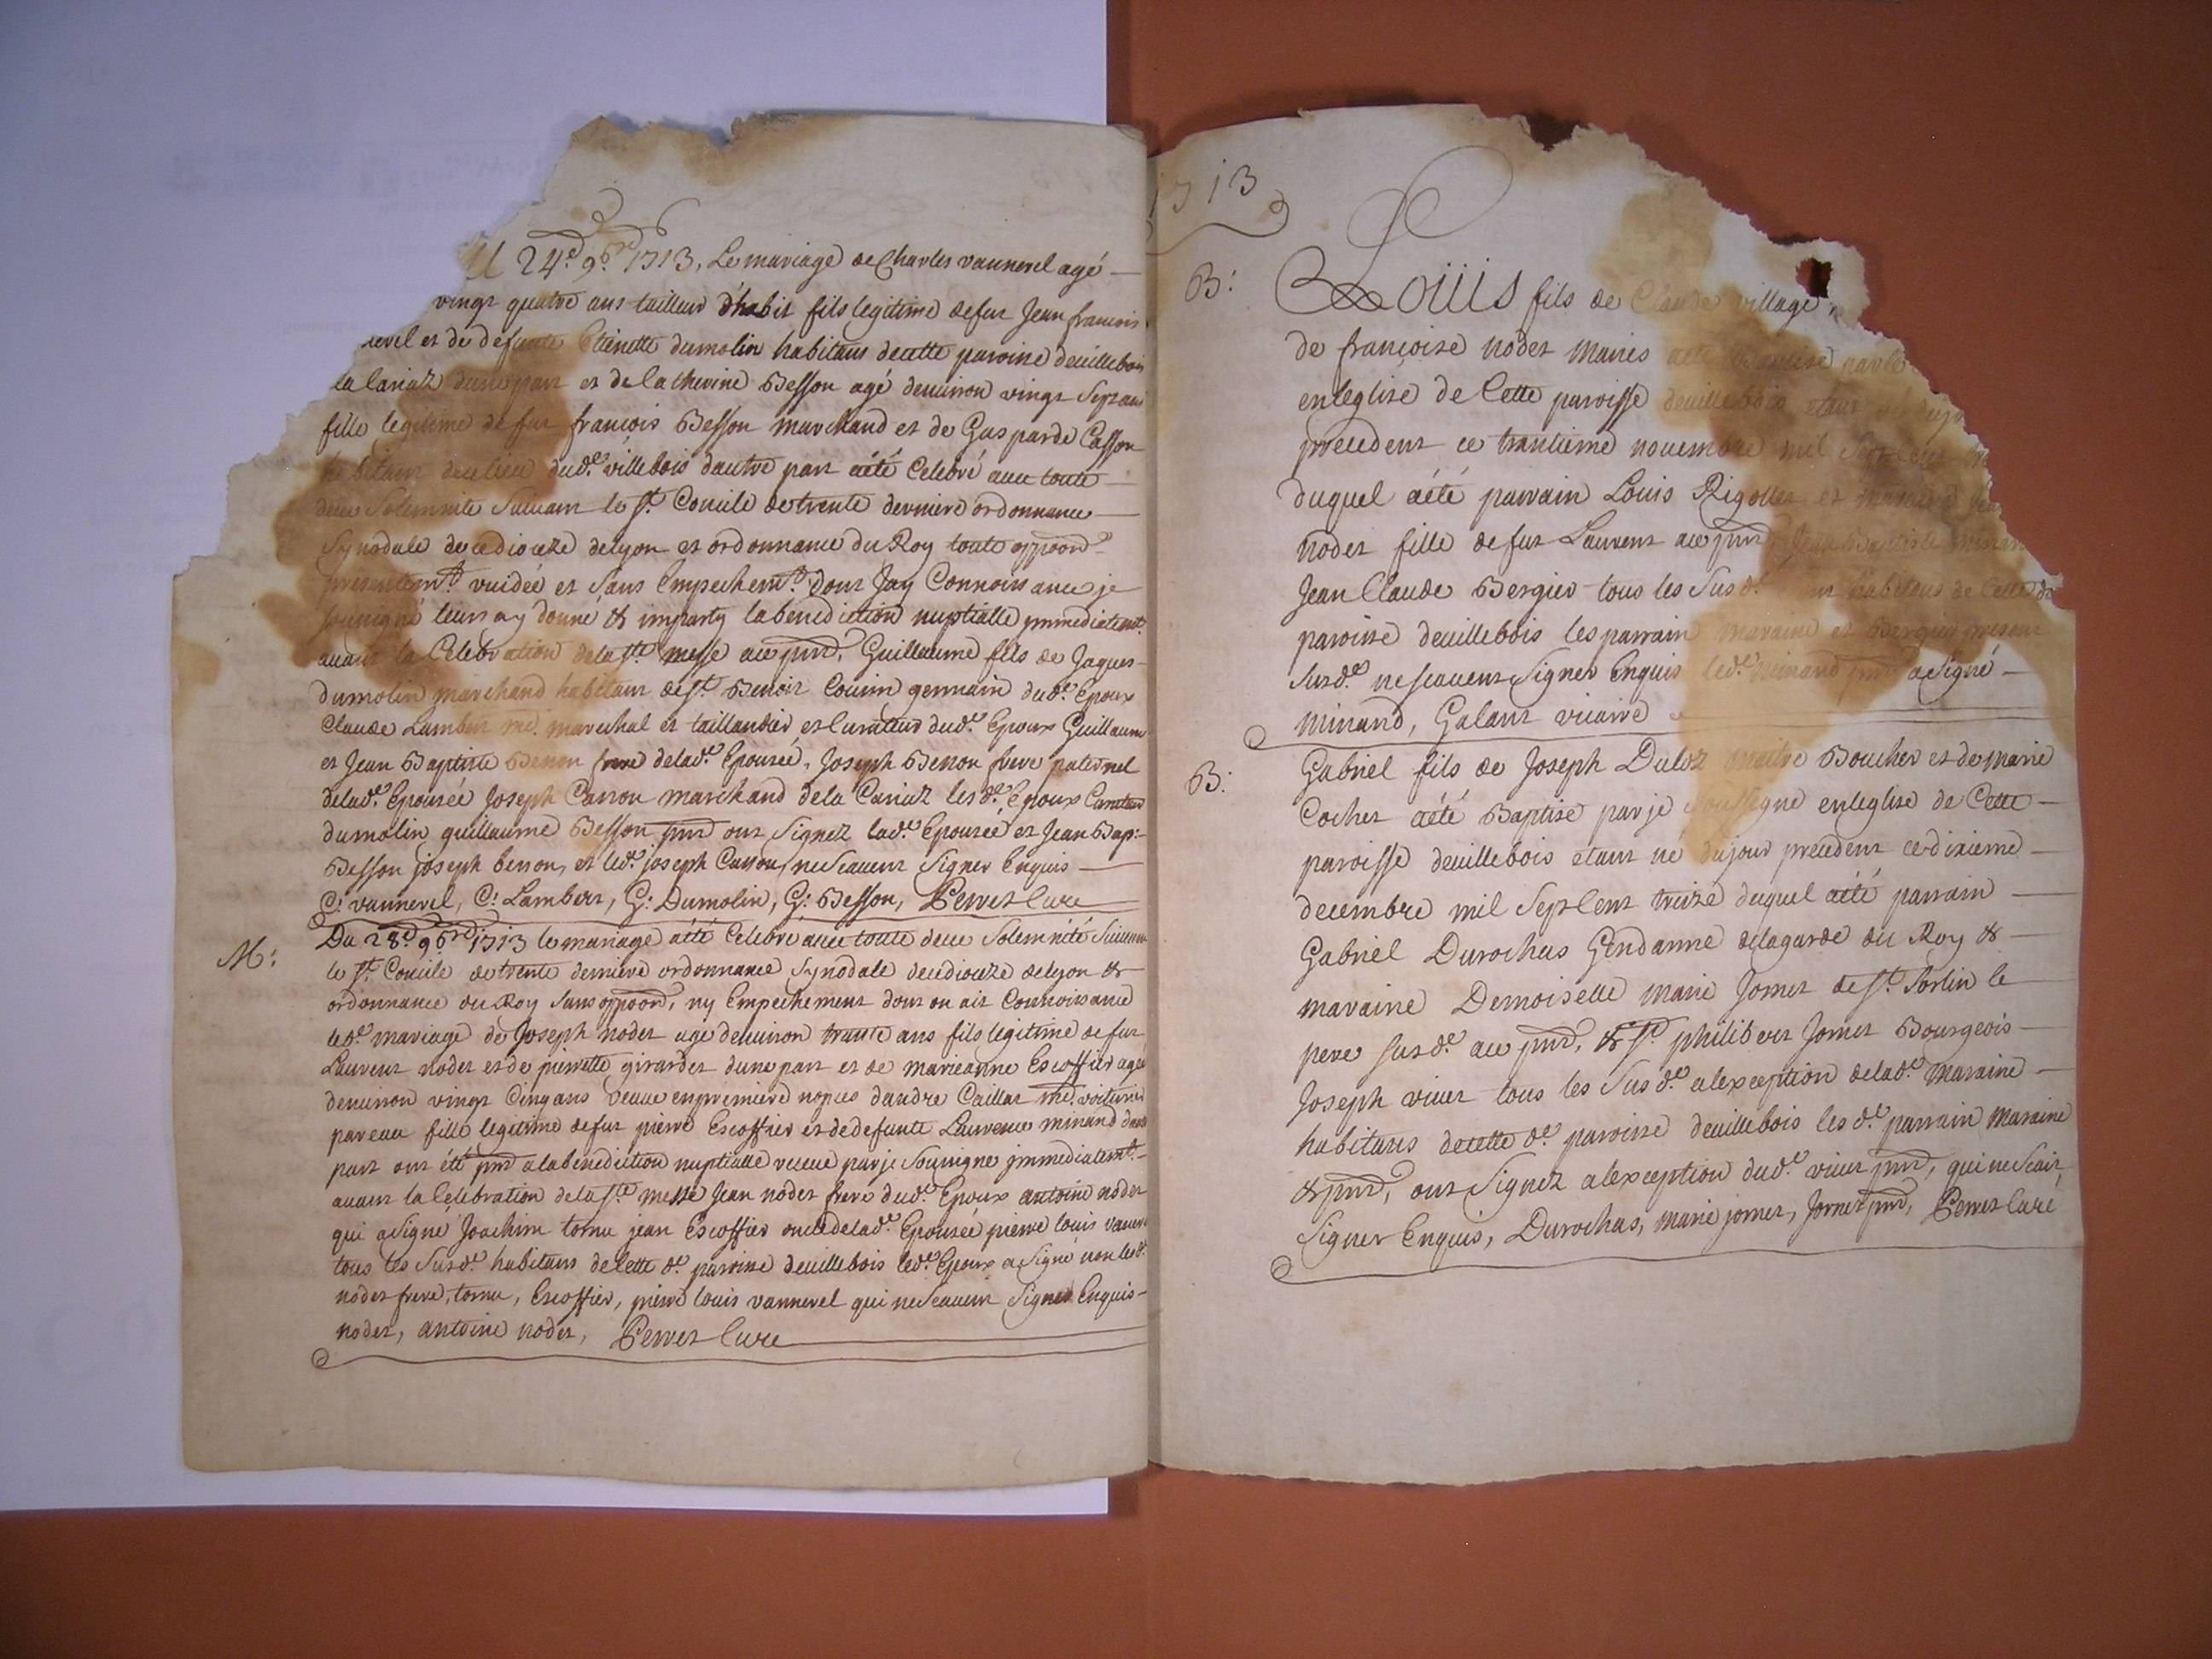 U 24e 9bre 1713, Le mariage de Charles vannevel agé
vingt quatre ans tailleur d'habit fils legitime de fut Jean francois
evel et de defunte Etienette dumolin habitans decette paroisse deuillebois
la Cariaz dune part et de Catherine Besson agé denuiron vingt Sept ans
fille legitime de fut françois Besson marchand et de Gasparde Casson
habitans decelieu dud.e villebois dautre part aété Celebré auec toute
deüe Solemnite Suiuant le St. Concile detrente derniere ordonnance
Synodale de cedioceze delyon et ordonnance du Roy toute oppoõn
presentemt. vuideé et Sans Empechemt. dont Jay Connoissance je
soussigné leurs ay donné & imparty labenediction nuptialle jmmediatemt.
auant la Celebration delaSte. messe aux pnts. Guillaume fils de Jaques
dumolin marchand habitant de St. Benoit Cousin germain dud.e Epoux
Claude Lambert me. marechal et taillandier, et Curateur dud.e Epoux Guillaume
et Jean Baptiste Besson frere delad.e Epouseé, Joseph Besson frere paternel
delad.e Epouseé Joseph Casson marchand dela Cariaz les d.e Epoux Curateur
dumolin guillaume Besson pnts ont Signez lad.e Epouseé et Jean Bap:
Besson joseph besson, et led.e joseph Casson, neScauent Signer Enquis
C: vannevel, C: Lambert, G: Dumolin, G: Besson, Perret Cure
M:
Du 28e 9bre 1713 le mariage aété Celebré auec toute deue Solemnité Suiuant
le St. Concile de trente derniere ordonnance Synodale decedioceze delyon &
ordonnance du Roy Sans oppoõn, ny Empechement dont on ait Connoissance
led.e mariage de Joseph nodet agé denuiron trante ans fils legitime de fut
Laurent nodet et de pierrette girardet dune part et de marieanne Escoffier ageé
denuiron vingt Cinq ans veuue enpremiere nopces dandre Caillat me. voiturier
par eau fille legitime de fut pierre Escoffier et dedefunte Laurence minand dautre
part ont été pnts alabenediction nuptialle receue par je Soussigne jmmediatemt.
auant la Celebration delaSte. messe Jean nodet frere dud.e Epoux antoine nodet
qui aSigné Joachim tornu jean Escoffier oncle delad.e Epouseé pierre louis vannevel
tous les Susd.e habitans de Cette d.e paroisse deuillebois led.e Epoux a Signé non les d.
nodet frere, tornu, Escoffier, pierre louis vannevel qui neScauent Signer Enquis
nodet, antoine nodet, Perret Cure
1713
B:
Loüis fils de Claude village,
de françoise nodet mariés aété baptisé par le
enleglise de Cette paroisse deuillebois etant né dujo
precedent ce trantieme nouembre mil Sept Cent
duquel aété parrain Louis Rigollet et maraine
nodet fille de fut Laurent aux pnts, Jean Baptiste minan
Jean Claude Bergier tous les Susd.e habitans de Cette d
paroisse deuillebois les parrain maraine et Bergier present
Susd.e ne scauent Signer Enquis led.e minand pnt aSigné
minand, Galant vicaire
B:
Gabriel fils de Joseph Duloz maitre Boucher et de marie
Cochet aété Baptisé par je soussigne enleglise de Cette
paroisse deuillebois etant né dujour precedent cedixieme
decembre mil Sept Cent treize duquel aété parrain
Gabriel Durochas Gendarme delagarde du Roy &
maraine Demoiselle marie Jornet de St. Sorlin le
pere Susd.e aux pnts, & Sr. philibert Jornet Bourgeois
Joseph viuet tous les Susd.e alexception delad.e maraine
habitans decette d.e paroisse deuillebois les d.e parrain maraine
& pnts, ont Signez alexception dud.e viuet pnt, qui neScait
Signer Enquis, Durochas, marie jornet, Jornet pnt, Perret Curé